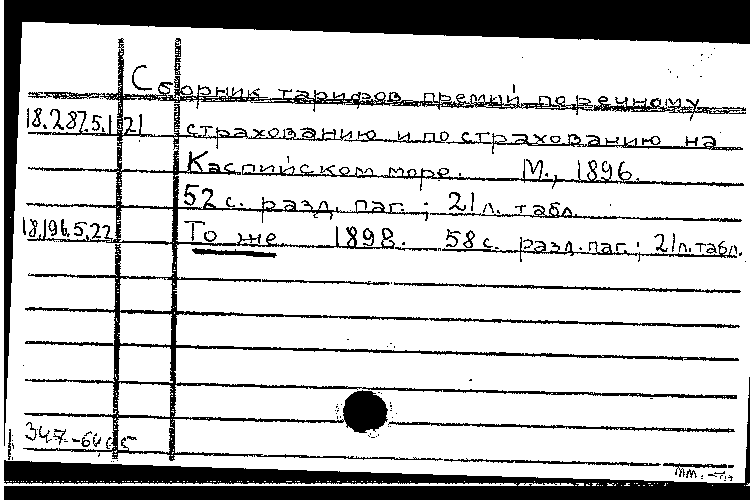 Сборник тарифов премий по речному
18.287.5.121 страхованию и по страхованию на
Каспийском море. М., 1896.
52 с. разд. паг.; 21 л. табл.
18.196.5.22 То же 1898. 58 с. разд. паг.; 21 л. табл.